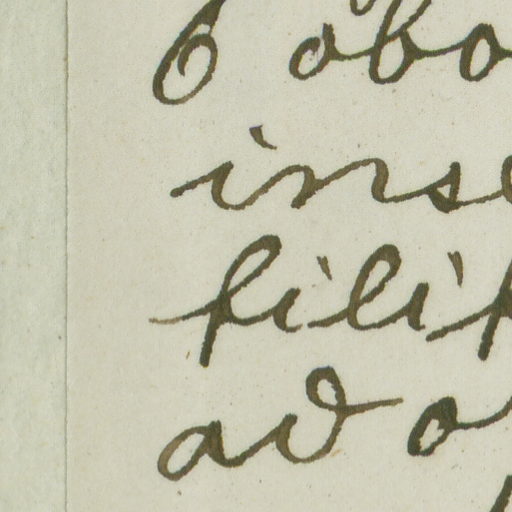 6 obo
inse
filif
ad o